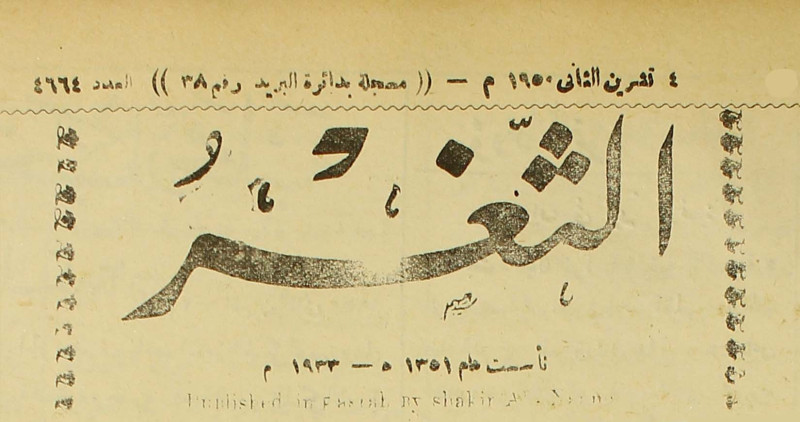 ٤ تشرين الثاني ١٩٥٠ م — (( مسجلة بدائرة البريد رقم ٣٨ )) العدد ٤٦٦٤
الثَّغْرُ
تأسست عام ١٣٥١ ه — ١٩٣٣ م
Published in Basrah by Shakir Al-